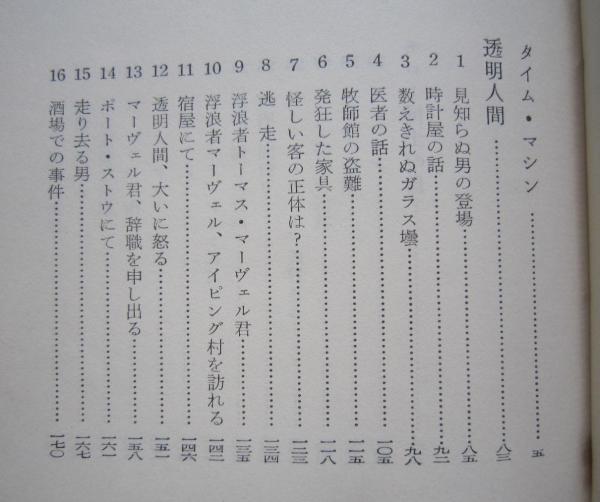 タイム・マシン……五
透明人間……八三
1 見知らぬ男の登場……八五
2 時計屋の話……九二
3 数えきれぬガラス壜……九八
4 医者の話……一〇五
5 牧師館の盗難……一一五
6 発狂した家具……一一八
7 怪しい客の正体は?……一二三
8 逃走……一三四
9 浮浪者トーマス・マーヴェル君……一三五
10 浮浪者マーヴェル、アイピング村を訪れる……一四二
11 宿屋にて……一四六
12 透明人間、大いに怒る……一五一
13 マーヴェル君、辞職を申し出る……一五八
14 ポート・ストウにて……一六一
15 走り去る男……一六七
16 酒場での事件……一七〇